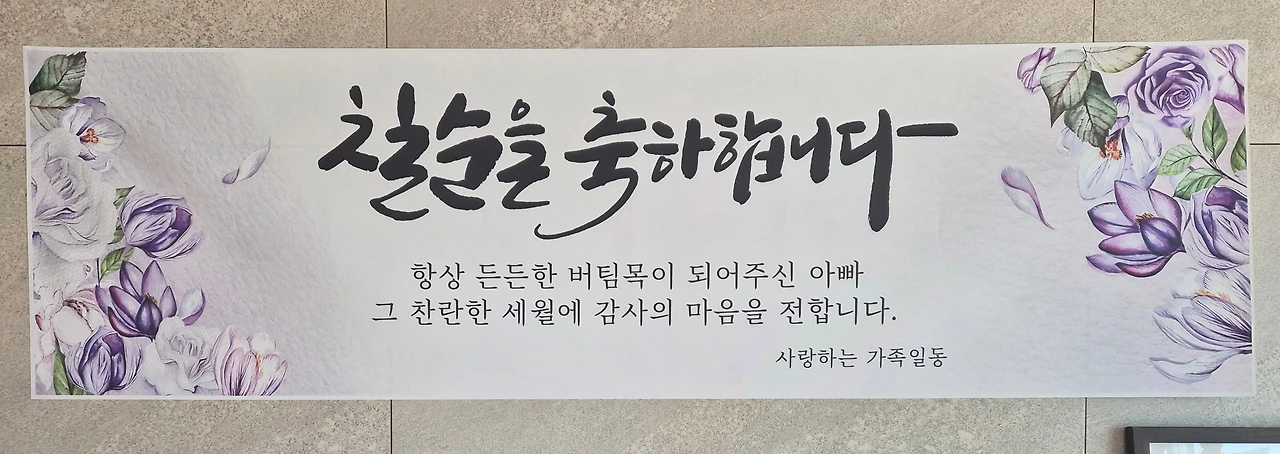 칠순을 축하합니다
항상 든든한 버팀목이 되어주신 아빠
그 찬란한 세월에 감사의 마음을 전합니다.
사랑하는 가족일동